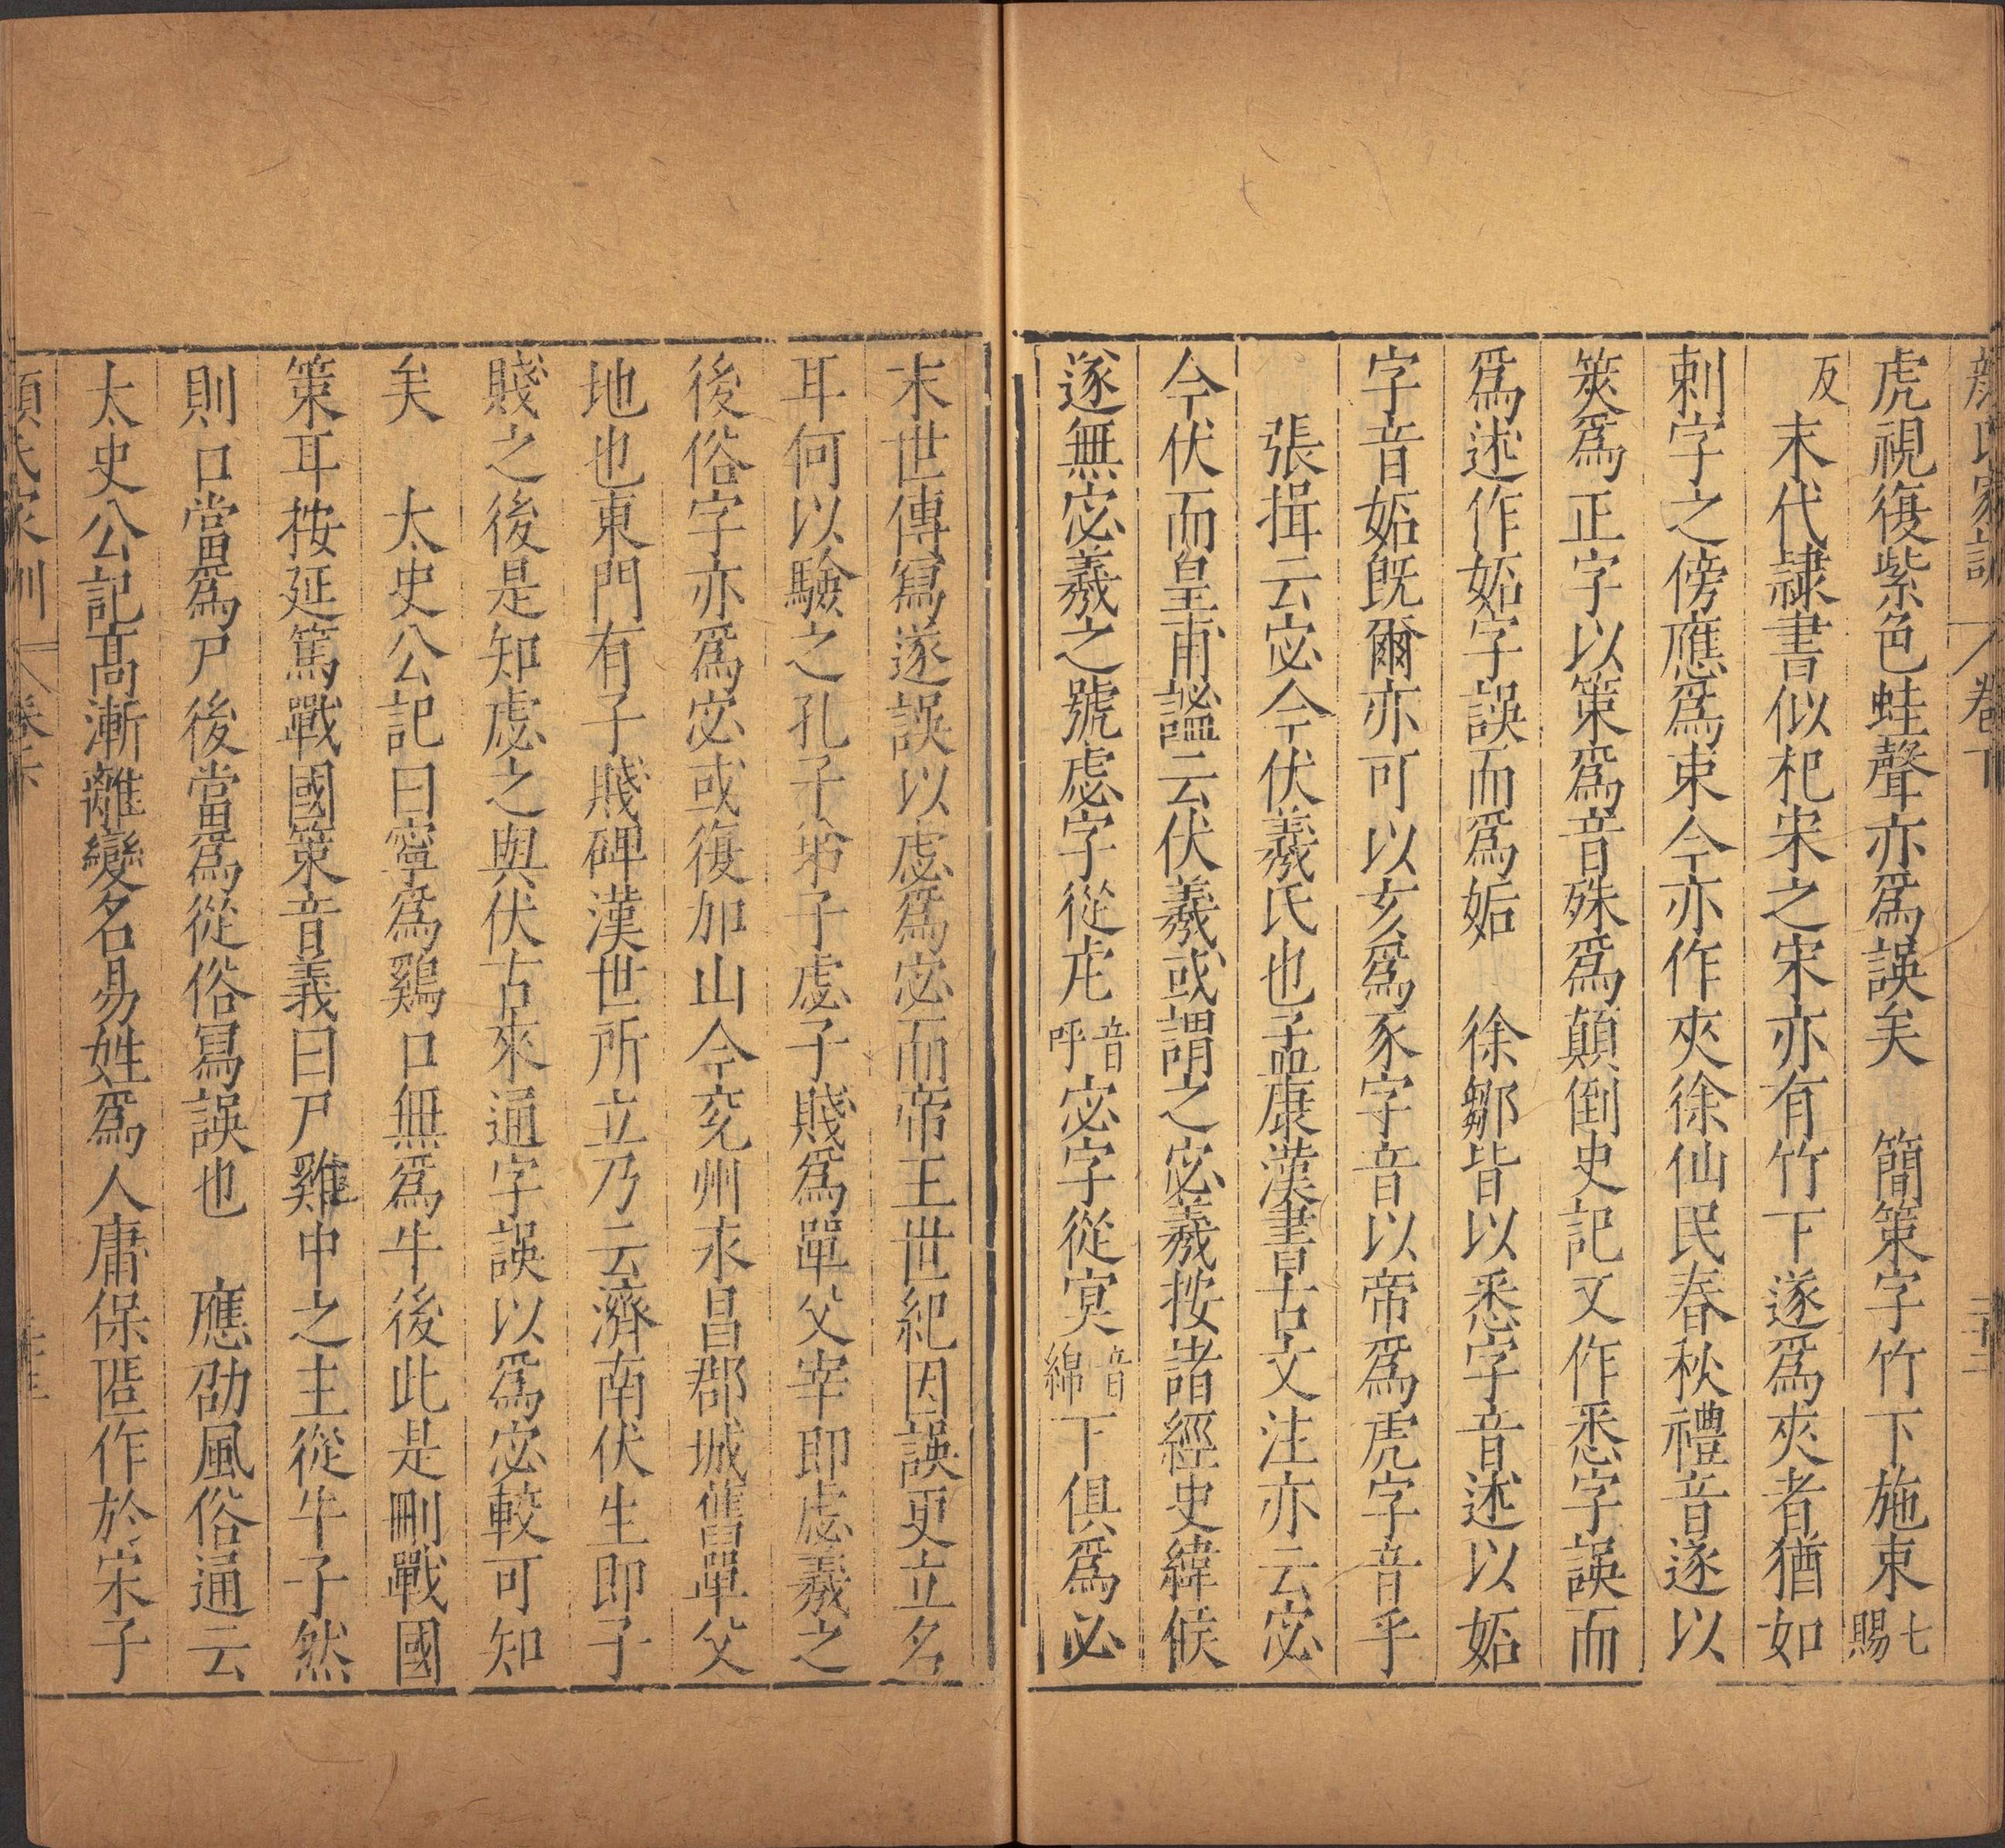 顔氏家訓 卷下
虎視復紫色蛙聲亦爲誤矣 簡策字竹下施朿七賜
反末代隷書似杞宋之宋亦有竹下遂爲夾者猶如
刺字之傍應爲朿今亦作夾徐仙民春秋禮音遂以
筴爲正字以策爲音殊爲顛倒史記又作悉字誤而
爲述作妬字誤而爲姤 徐鄒皆以悉字音述以妬
字音姤旣爾亦可以亥爲豕字音以帝爲虎字音乎
張揖云宓今伏羲氏也孟康漢書古文注亦云宓
今伏而皇甫謐云伏羲或謂之宓羲按諸經史緯候
遂無宓羲之號虙字從虍音呼宓字從宀音綿下俱爲必
末世傳冩遂誤以虙爲宓而帝王世紀因誤更立名
耳何以驗之孔子弟子虙子賤爲單父宰即虙羲之
後俗字亦爲宓或復加山今兖州永昌郡城舊單父
地也東門有子賤碑漢世所立乃云濟南伏生即子
賤之後是知虙之與伏古來通字誤以爲宓較可知
矣 太史公記曰寧爲鷄口無爲牛後此是刪戰國
策耳按延篤戰國策音義曰尸雞中之主從牛子然
則口當爲尸後當爲從俗冩誤也 應劭風俗通云
太史公記髙漸離變名易姓爲人庸保匿作於宋子
顔氏家訓 卷下